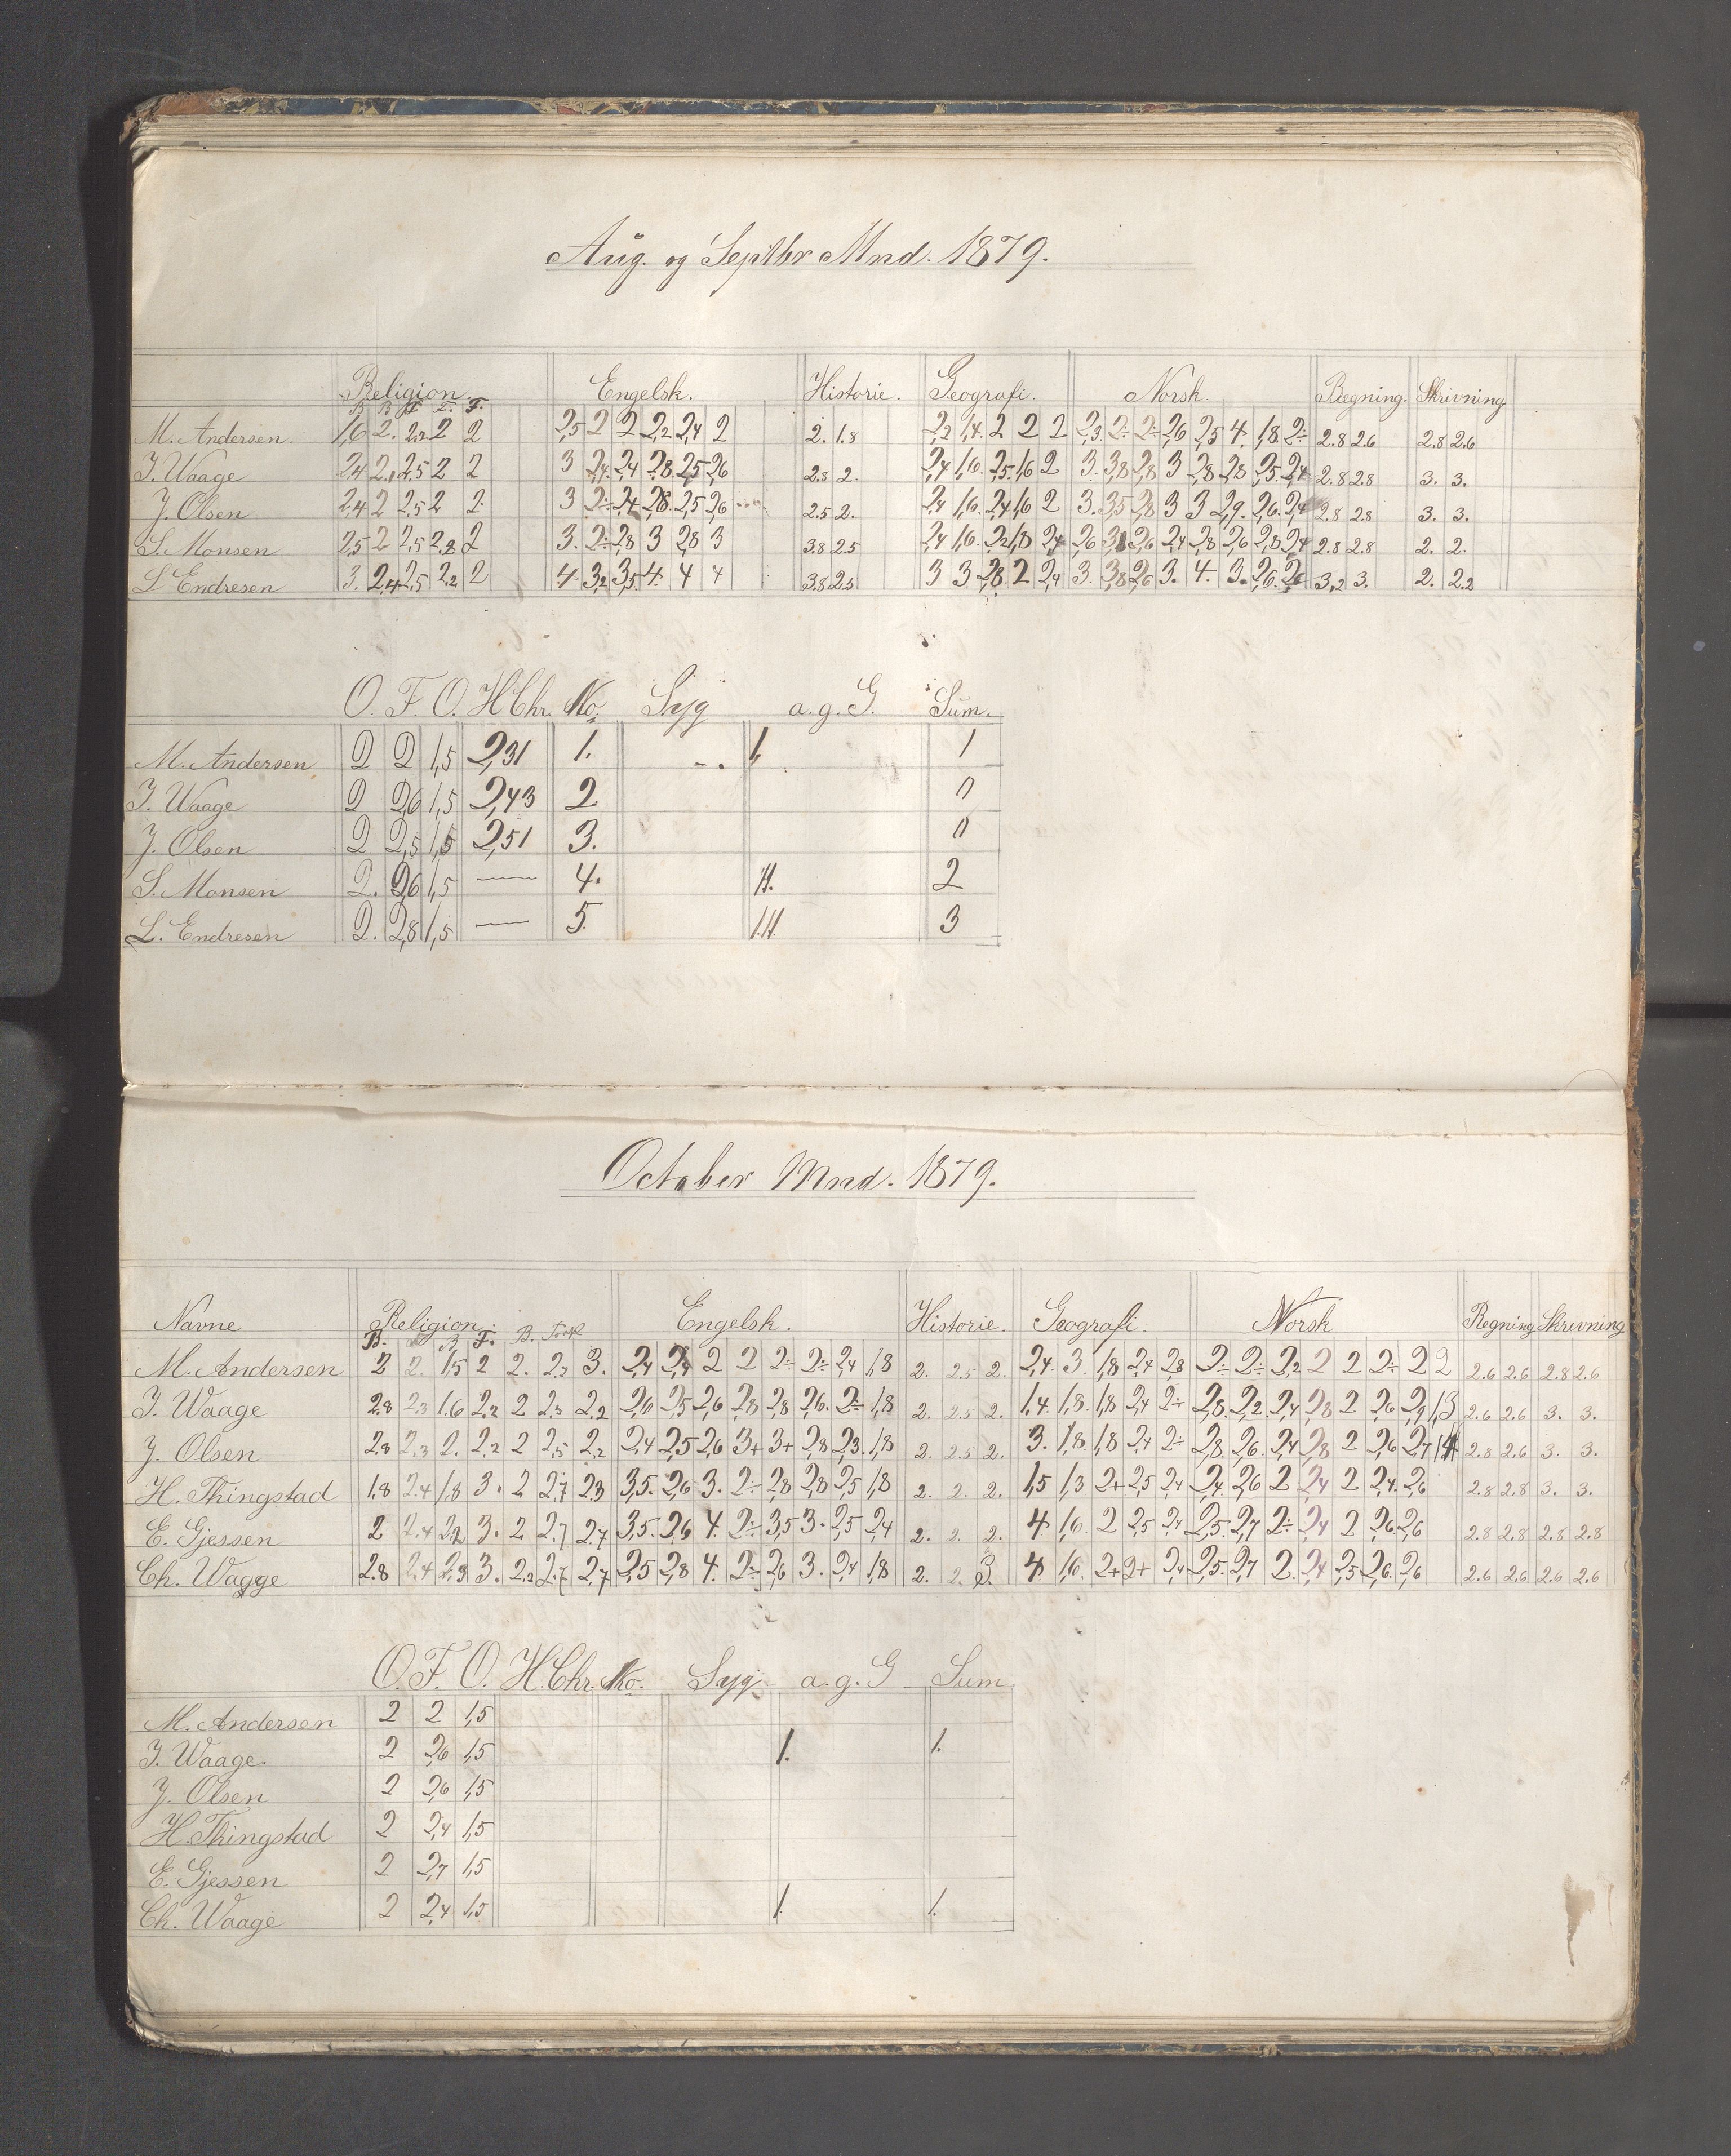 Aug. og Septbr Mnd. 1879.
Religion. Engelsk. Historie. Geografi. Norsk. Regning. Skrivning
B B F F. F.
M. Andersen. 1,6 2. 2,2 2 2 2,5 2 2 2,2 2,4 2 2. 1.8 2,2 1,4. 2 2 2 2,3. 2÷ 2÷ 2,6 2,5 4. 1,8. 2÷ 2.8 2.6 2.8 2.6
J. Waage 2,4 2,1 2,5 2 2 3 2,4. 2,4 2,8. 2,5 2,6 2.8 2. 2,4 1,6. 2,5. 1,6 2 3. 3,8 2,8 3 2,8 2,8 2,5. 2,4 2.8 2.8 3. 3.
J. Olsen 2,4 2 2,5 2 2 3 2÷ 2,4 2,8. 2,5 2,6 2.5 2. 2,4 1,6. 2,4 1,6 2 3. 3,5 2,8 3 3 2,9. 2,6. 2,4 2.8 2.8 3. 3.
S. Monsen 2,5 2 2,5 2,8 2 3. 2÷ 2,8 3 2,8 3 3.8 2.5 2,4 1,6. 2,2 1,8 2,4 2,6 3,8 2,6 2,4 2,8 2,6 2,8 2,4 2.8 2.8 2. 2.
L Endresen 3. 2,4 2,5 2,2 2 4. 3,2 3,5. 4. 4 4 3.8 2.5 3 3 2,8. 2 2,4 3. 3,8 2,6 3. 4. 3. 2,6. 2,6 3,2 3. 2. 2.2
O. F. O. H Chr. No. Syg a. g. G. Sum.
M. Andersen 2 2 1,5 2,31 1. 1. 1
J. Waage 2 2,6 1,5 2,43 2 0
J. Olsen 2 2,5 1,5 2,51 3. 0
S. Monsen 2. 2,6 1,5 — 4. 11. 2
L. Endresen 2. 2,8 1,5 — 5. 1.11. 3
October Mnd. 1879.
Navne Religion. Engelsk. Historie. Geografi. Norsk Regning Skrivning
B. B F. B.
M. Andersen 2 2. 1,5 2 2. 2,7 3. 2,4 2,4 2 2 2÷ 2÷ 2,4 1,8 2. 2.5 2. 2,4. 3. 1,8 2,4 2,8 2÷ 2÷ 2,2 2 2 2÷ 2 2 2.6 2.6 2.8 2.6
J. Waage 2.8 2.3 1.6 2,2 2 2,5 2,2 2,6 2,5 2,6 2,8 2,8 2,6. 2÷ 1,8 2. 2.5 2. 1,4. 1,8. 1,8 2,4 2÷ 2,8. 2,2. 2,4 2,8 2 2,6 2,9 1,3 2.6 2.6 3. 3.
J. Olsen 2.8 2.3 2. 2,2 2 2,5 2,2 2,4 2,5 2,6 3+ 3+ 2,8 2,3. 1,8 2. 2.5 2. 3. 1,8. 1,8 2,4 2÷ 2,8 2,6. 2,4 2,8 2 2,6 2,7 1,4 2.8 2.6 3. 3.
H. Thingstad 1.8 2.4 1,8 3. 2 2.7 2,3 3,5. 2,6 3. 2÷ 2,8 2,8 2,5 1,8 2. 2. 2. 1,5 1,3 2+ 2,5 2,4 2,4. 2,6 2 2,4 2 2,4. 2,6 2.8 2.8 3. 3.
E. Gjessen 2 2.4 2,2 3. 2 2.7 2,7 3,5. 2,6 4. 2÷ 3,5 3. 2,5 2,4 2. 2. 2. 4. 1,6. 2 2,5 2,4 2,5. 2,7 2÷ 2,4 2 2,6 2,6 2.8 2.8 2.8 2.8
Ch. Waage 2.8 2.4 2,3 3. 2.2 2.7 2,7 2,5 2,8 4. 2÷ 2,6 3. 2,4 1,8 2. 2. 3. 4. 1,6. 2+ 2+ 2,4 2,5. 2,7 2. 2,4 2,5 2,6. 2,6 2.6 2.6 2.6 2.6
O. F. O. H. Chr. No. Syg. a. g. G Sum.
M. Andersen 2 2 1,5
J. Waage. 2 2,6 1,5 1. 1.
J. Olsen 2 2,6 1,5
H. Thingstad 2 2,4 1,5
E. Gjessen 2 2,7 1,5
Ch. Waage 2 2,4 1,5 1. 1.